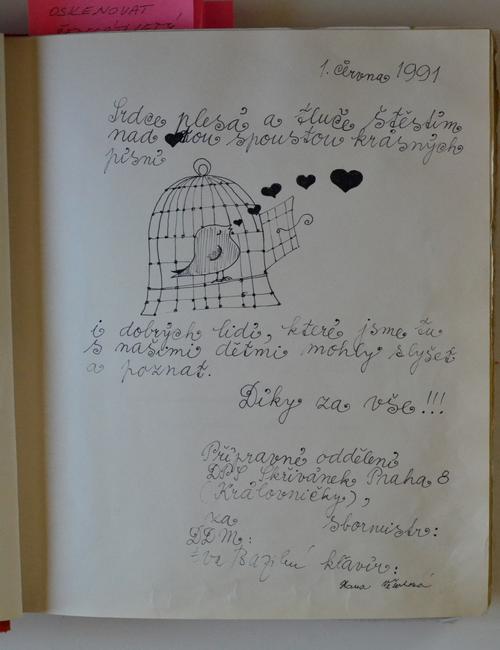 OSKENOVAT
1. června 1991
Srdce plesá a tluče štěstím
nad tou spoustou krásných
písní
i dobrých lidí, které jsme tu
s našimi dětmi mohly slyšet
a poznat.
Díky za vše!!!
Přípravné oddělení
DPS Skřivánek Praha 8
(Královničky),
za sbormistr:
DDM:
klavír:
Hana